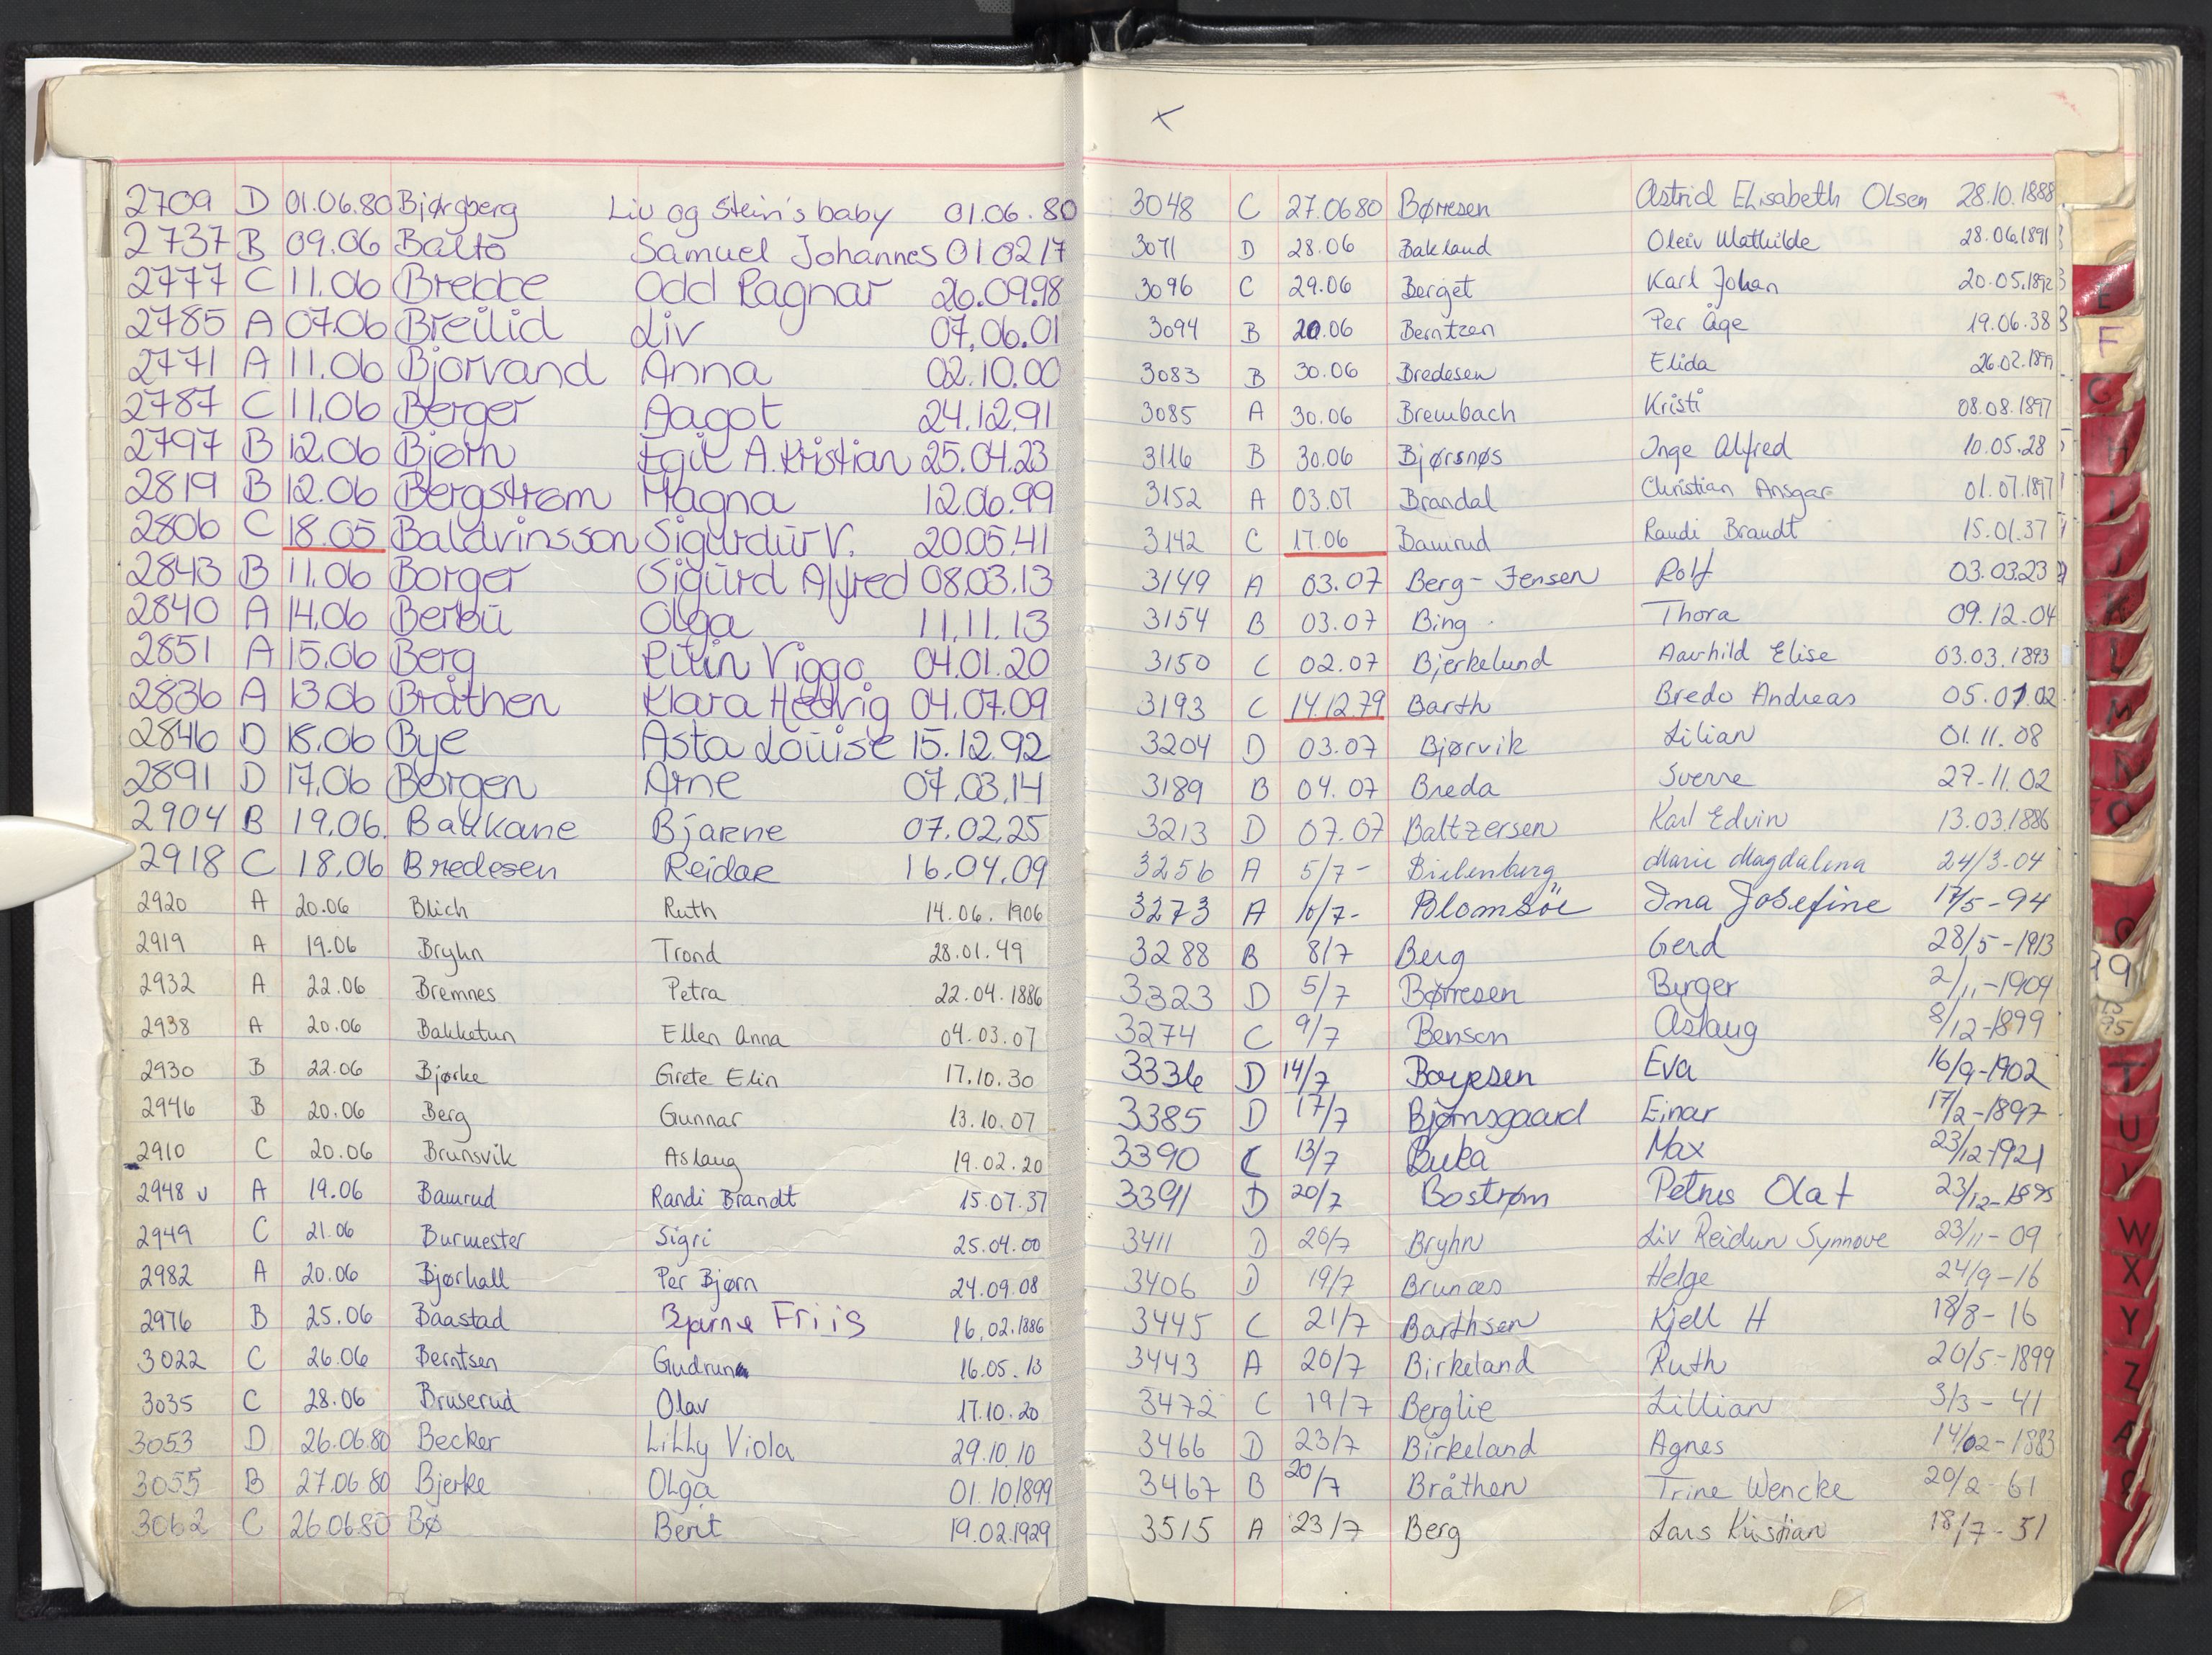 2709 D 01.06.80 Bjørgberg Liv og Stein's baby 01.06.80
2737 B 09.06 Balto Samuel Johannes 01.02.17
2777 C 11.06 Brekke Odd Ragnar 26.09.98
2785 A 07.06 Breilid Liv 07.06.01
2771 A 11.06 Bjorvand Anna 02.10.00
2787 C 11.06 Berger Aagot 24.12.91
2797 B 12.06 Bjørn Egil A. Kristian 25.04.23
2819 B 12.06 Bergstrøm Magna 12.06.99
2806 C 18.05 Baldvinsson Sigurdur V. 20.05.41
2843 B 11.06 Borger Sigurd Alfred 08.03.13
2840 A 14.06 Berbu Olga 11.11.13
2851 A 15.06 Berg Viggo 04.01.20
2836 A 13.06 Bråthen Klara Hedvig 04.07.09
2846 D 18.06 Bye Asta Louise 15.12.92
2891 D 17.06 Borgen Arne 07.03.14
2904 B 19.06. Bakkane Bjarne 07.02.25
2918 C 18.06 Bredesen Reidar 16.04.09
2920 A 20.06 Blich Ruth 14.06.1906
2919 A 19.06 Bryhn Trond 28.01.49
2932 A 22.06 Bremnes Petra 22.04.1886
2938 A 20.06 Bakketun Ellen Anna 04.03.07
2930 B 22.06 Bjørke Grete Elin 17.10.30
2946 B 20.06 Berg Gunnar 13.10.07
2910 C 20.06 Brunsvik Aslaug 19.02.20
2948 A 19.06 Baurud Randi Brandt 15.07.37
2949 C 21.06 Burmester Sigri 25.04.00
2982 A 20.06 Bjørhall Per Bjørn 24.09.08
2976 B 25.06 Baastad Bjarne Friis 16.02.1886
3022 C 26.06 Berntsen Gudrun 16.05.13
3035 C 28.06 Bruserud Olav 17.10.20
3053 D 26.06.80 Becker Lilly Viola 29.10.10
3055 B 27.06 80 Bjerke Olga 01.10.1899
3062 C 26.06.80 Bø Berit 19.02.1929
3048 C 27.06 80 Børresen Astrid Elisabeth Olsen 28.10.1888
3071 D 28.06 Bakland Oleiv Mathilde 28.06.1891
3096 C 29.06 Berget Karl Johan 20.05.1892
3094 B 20.06 Berntzen Per Åge 19.06.38
3083 B 30.06 Bredesen Elida 26.02.1899
3085 A 30.06 Brembach Kristi 08.08.1897
3116 B 30.06 Bjørsnøs Inge Alfred 10.05.28
3152 A 03.07 Brandal Christian Ansgar 01.07.1897
3142 C 17.06 Baurud Randi Brandt 15.01.37
3149 A 03.07 Berg-Jensen Rolf 03.03.23
3154 B 03.07 Bing Thora 09.12.04
3150 C 02.07 Bjerkelund Elise 03.03.1893
3193 C 14.12.79 Barth Bredo Andreas 05.01.02
3204 D 03.07 Bjørvik Lilian 01.11.08
3189 B 04.07 Breda Sverre 27-11.02
3213 D 07.07 Baltzersen Karl Edvin 13.03.1886
3256 A 5/7- Bielenberg Marie Magdalena 24/3-04
3273 A 10/7- Ina Josefine 17/5-94
3288 B 8/7 Berg Gerd 28/5-1913
3323 D 5/7 Børresen Birger 2/11-1904
3274 C 9/7 Benson Aslaug 8/12-1899
3336 D 14/7 Eva 16/9-1902
3385 D 17/7 Bjørnsgaard Einar 17/2-1897
3390 C 13/7 Buka Max 23/12-1921
3391 D 20/7 Bostrøm Petrus Olaf 23/12-1895
3411 D 20/7 Bryhn Liv Reidun Synnøve 23/11-09
3406 D 19/7 Brunæs Helge 24/9-16
3445 C 21/7 Barthsen Kjell H 18/8-16
3443 A 20/7 Birkeland Ruth 20/5-1899
3472 C 19/7 Berglie Lillian 3/3-41
3466 D 23/7 Birkeland Agnes 14/02-1883
3467 B 20/7 Bråthen Trine Wencke 20/2-61
3515 A 23/7 Berg Lars Kristian 18/7-51
E
F
G
H
I
J
K
L
M
N
O
T
U
V
W
X
Y
Z